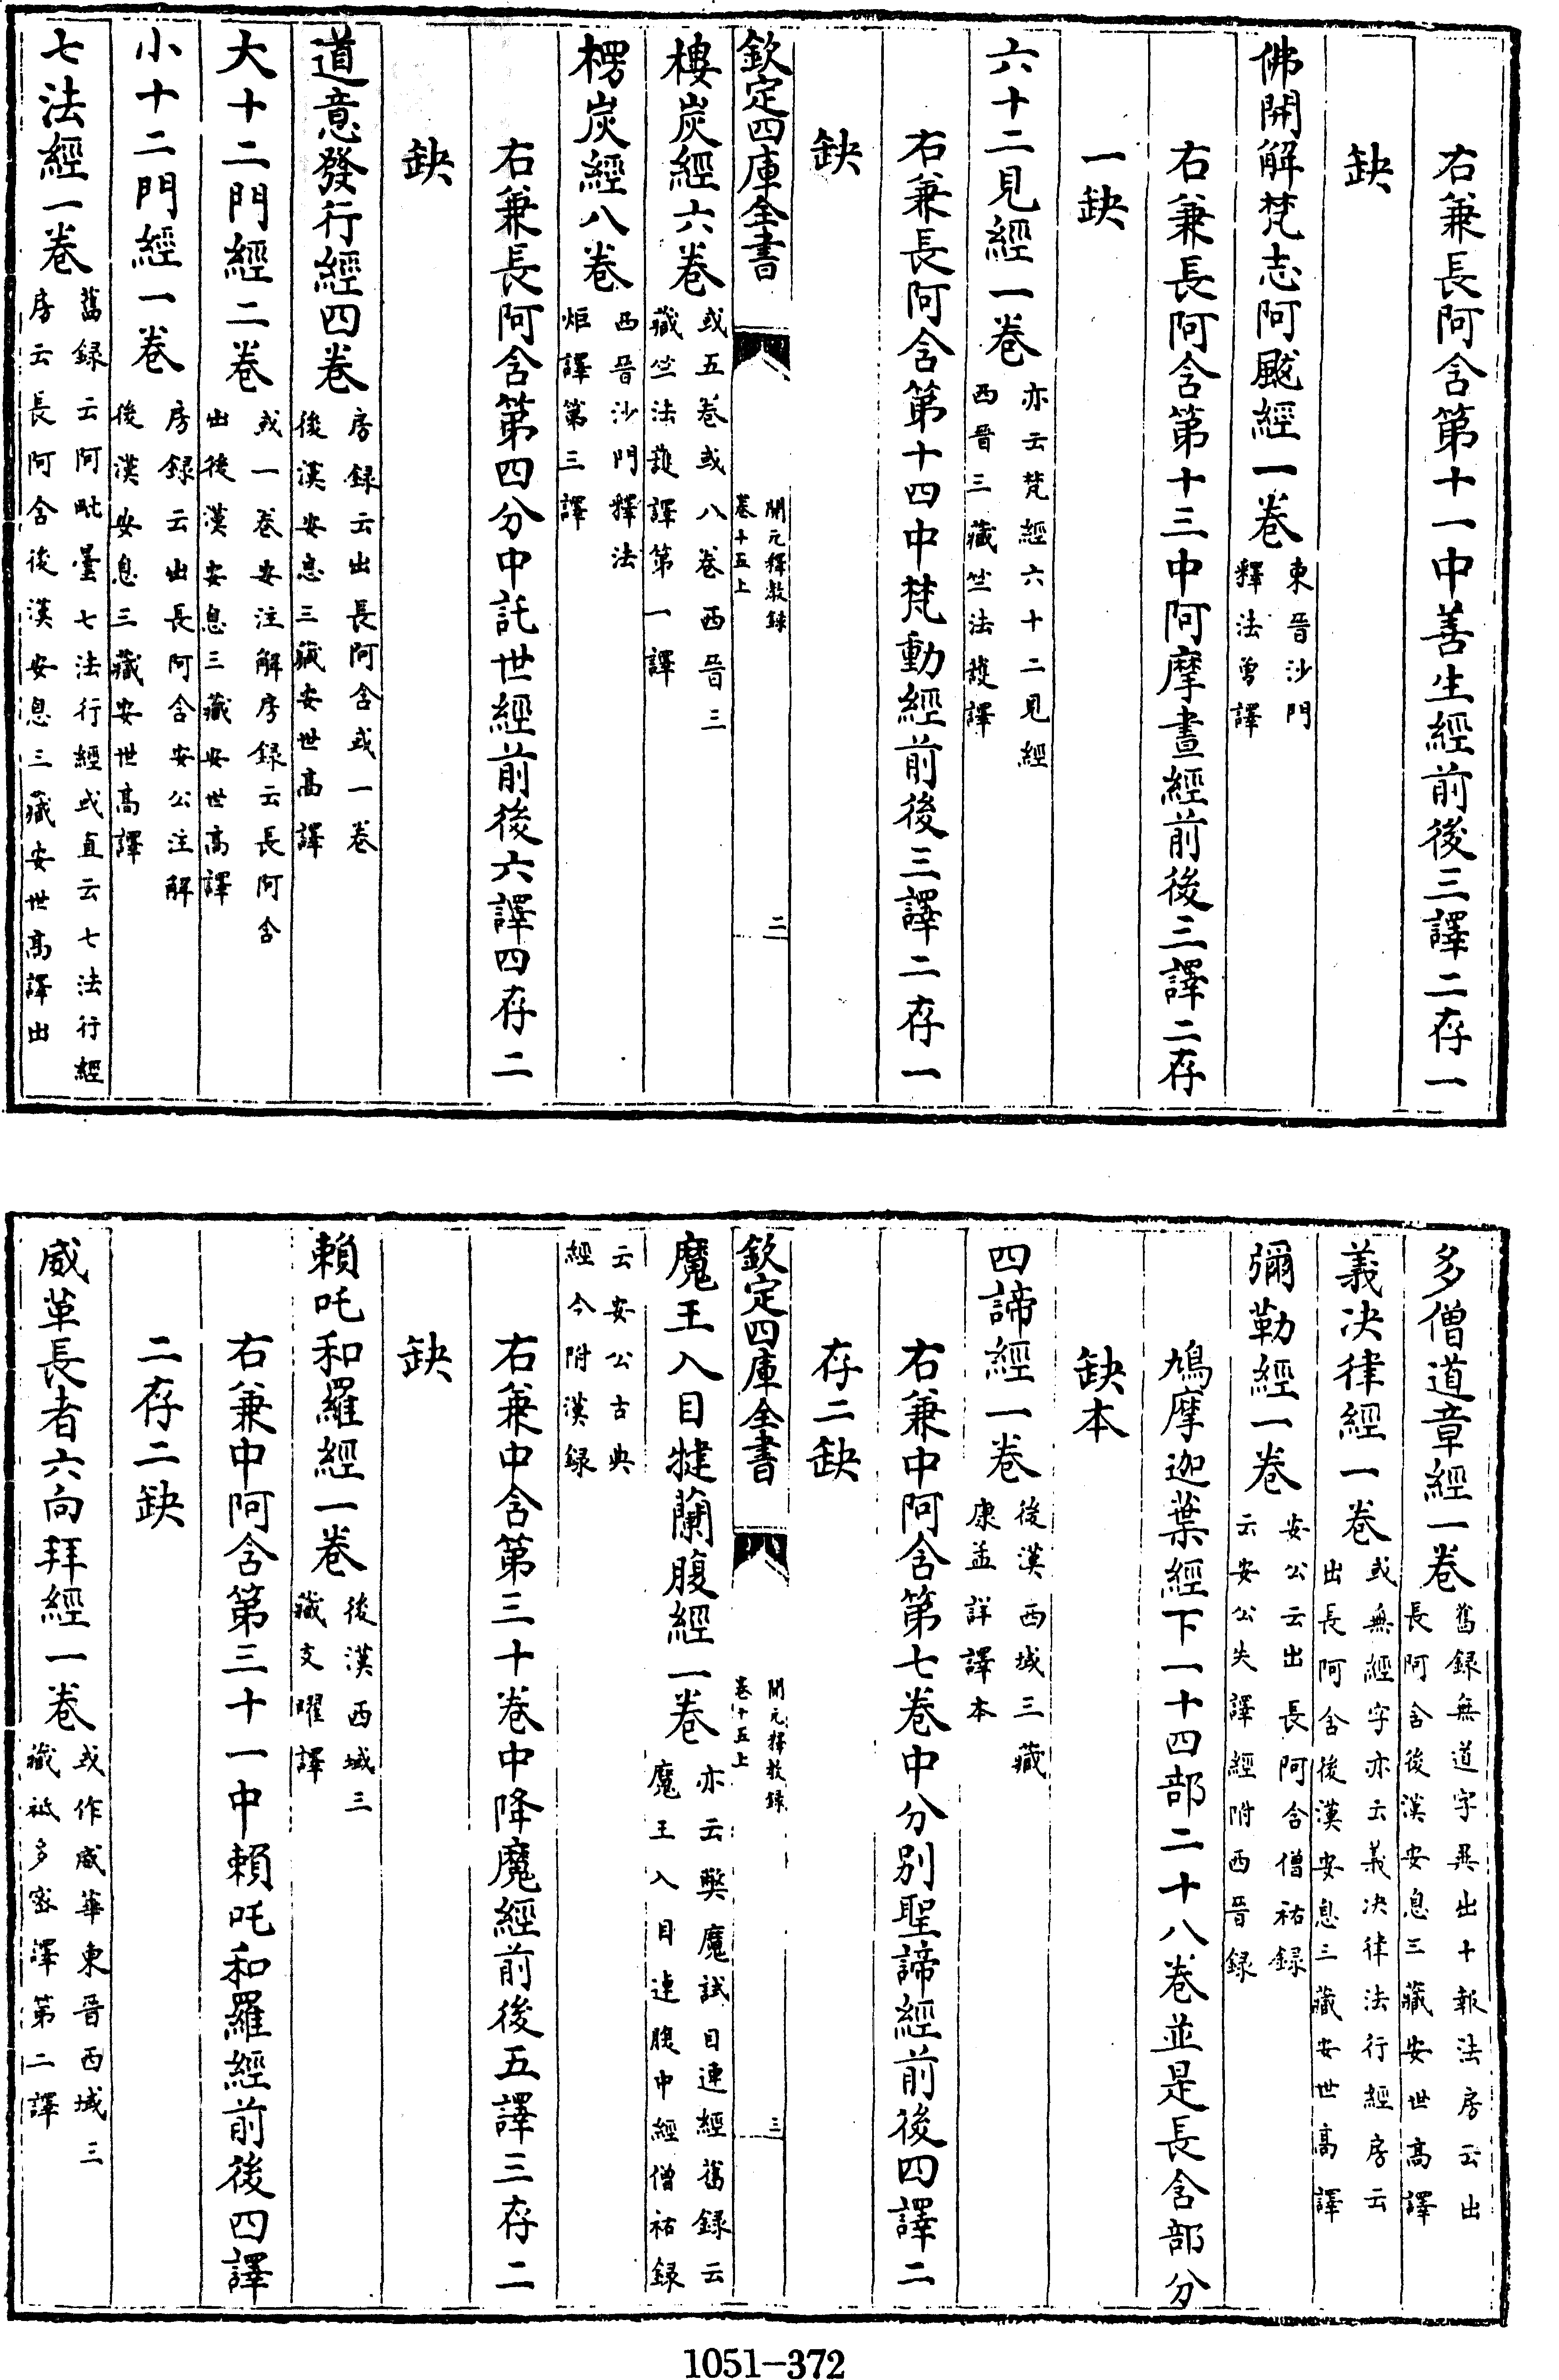 右兼長阿含第十一中善生經前後三譯二存一
缺
佛開解梵志阿颰經一卷東晉沙門釋法勇譯
右兼長阿含第十三中阿摩晝經前後三譯二存
一缺
六十二見經一卷亦云梵經六十二見經西晉三藏竺法護譯
右兼長阿含第十四中梵動經前後三譯二存一
缺
欽定四庫全書 開元釋教録卷十五上 二
樓炭經六卷或五卷或八卷西晉三藏竺法護譯第一譯
楞炭經八卷西晉沙門釋法炬譯第三譯
右兼長阿含第四分中託世經前後六譯四存二
缺
道意發行經四卷房録云出長阿含或一卷後漢安息三藏安世高譯
大十二門經二卷或一卷安注解房録云長阿含出後漢安息三藏安世高譯
小十二門經一卷房録云出長阿含安公注解後漢安息三藏安世高譯
七法經一卷舊録云阿毗曇七法行經或直云七法行經房云長阿含後漢安息三藏安世高譯出
多僧道章經一卷舊録無道字異出十報法房云出長阿含後漢安息三藏安世高譯
義决律經一卷或無經字亦云義决律法行經房云出長阿含後漢安息三藏安世高譯
彌勒經一卷安公云出長阿含僧祐録云安公失譯經附西晉録
鳩摩迦葉經下一十四部二十八卷並是長含部分
缺本
四諦經一卷後漢西域三藏康孟詳譯本
右兼中阿含第七卷中分别聖諦經前後四譯二
存二缺
欽定四庫全書 開元釋教録卷十五上 三
魔王入目揵蘭腹經一卷亦云獘魔試目連經舊録云魔王入目連腹中經僧祐録
云安公古典經今附漢録
右兼中含第三十卷中降魔經前後五譯三存二
缺
賴吒和羅經一卷後漢西域三藏支曜譯
右兼中阿含第三十一中賴吒和羅經前後四譯
二存二缺
威革長者六向拜經一卷或作威華東晉西域三藏祇多蜜譯第二譯
1051-372